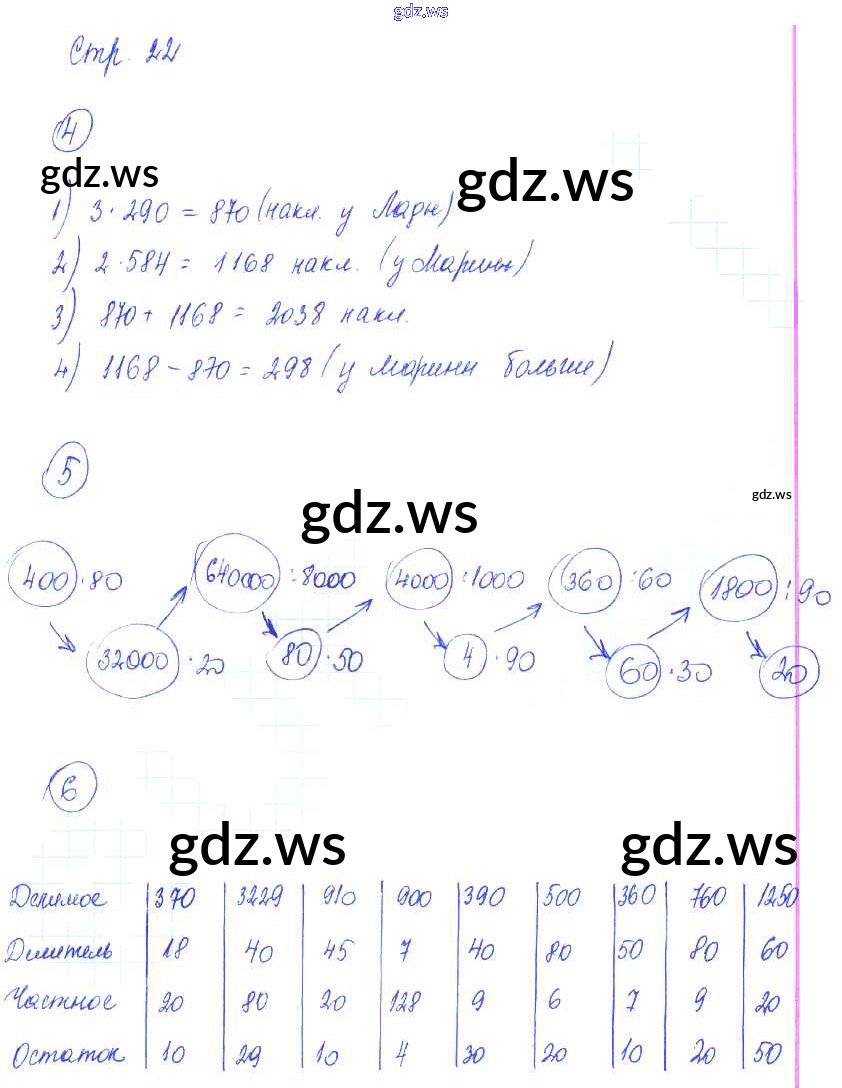 gdz.ws
Стр. 22
4
gdz.ws gdz.ws
1) 3 · 290 = 870 (накл. у Лады)
2) 2 · 584 = 1168 накл. (у Марины)
3) 870 + 1168 = 2038 накл.
4) 1168 - 870 = 298 (у Марины больше)
5
gdz.ws
gdz.ws
400 · 80 640000 : 8000 4000 : 1000 360 : 60 1800 : 90
32000 · 20 80 · 50 4 · 90 60 · 30 20
6
gdz.ws gdz.ws
Делимое 370 3229 910 900 390 500 360 760 1250
Делитель 18 40 45 7 40 80 50 80 60
Частное 20 80 20 128 9 6 7 9 20
Остаток 10 29 10 4 30 20 10 20 50